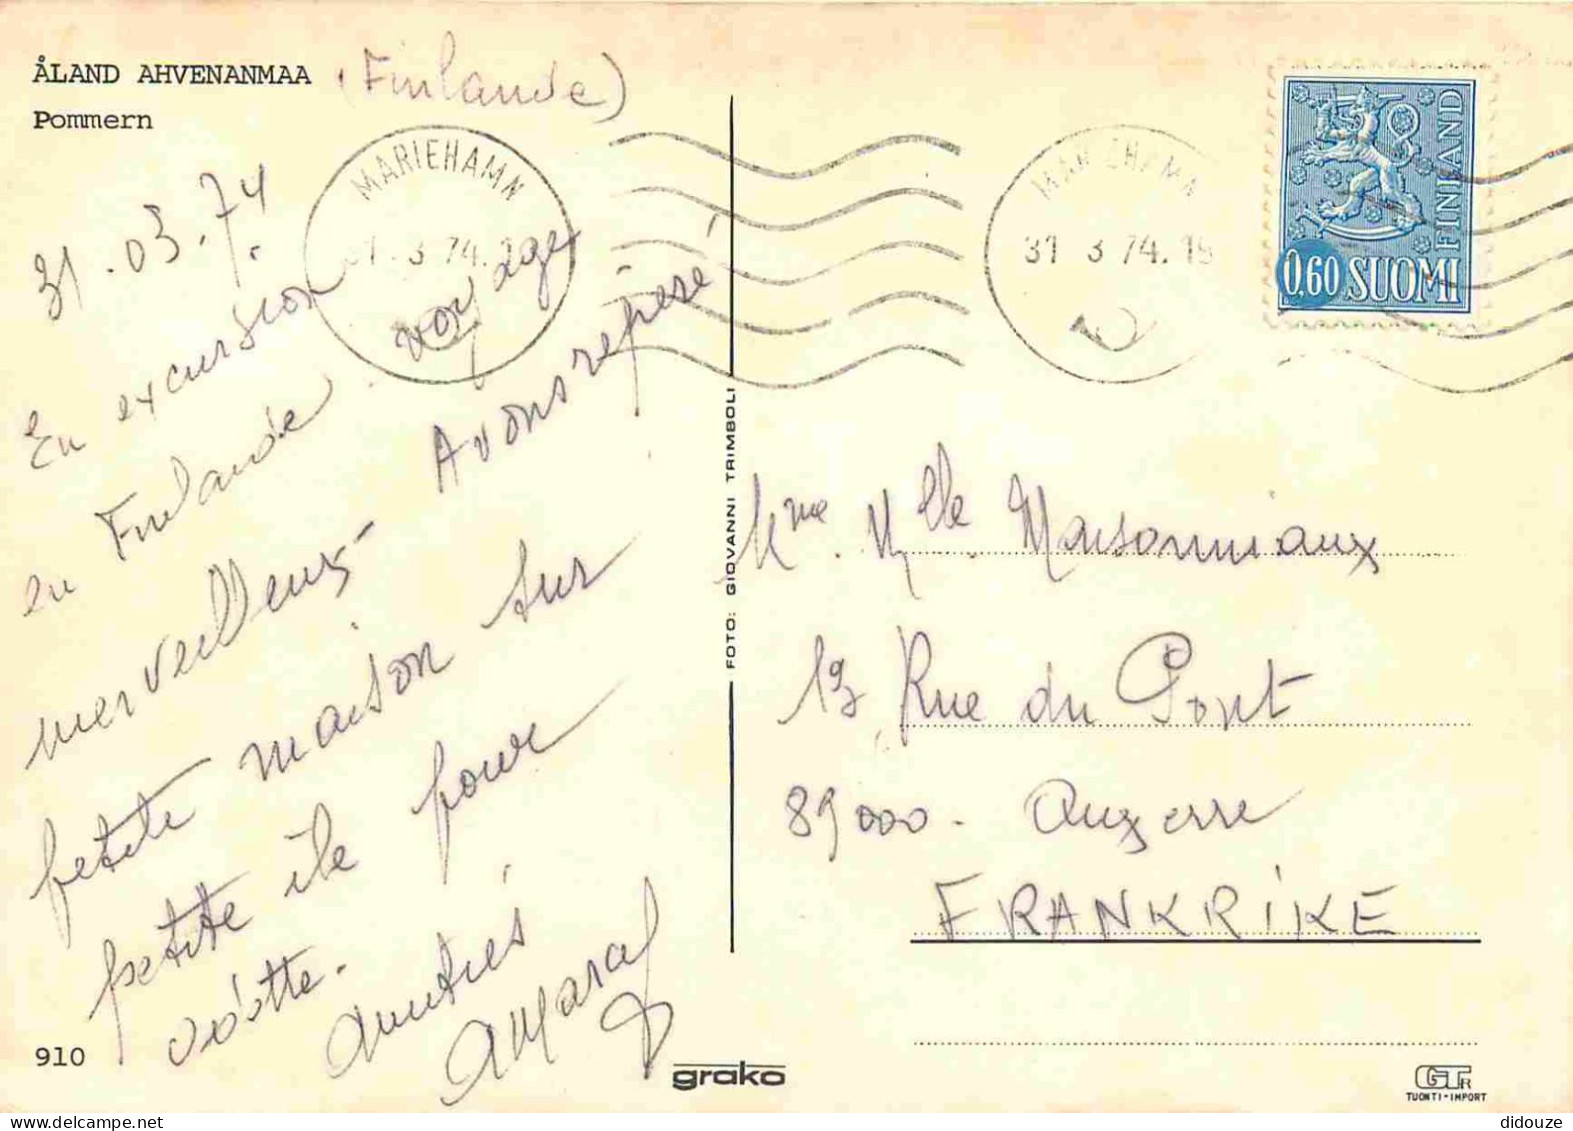 ÅLAND AHVENANMAA (Finlande)
Pommern
31.03.74
MARIEHAMN
31.3.74.
MARIEHAMN
31 3 74.15
FINLAND
0,60 SUOMI
En excursion
en Finlande voyage
merveilleux - Avons repéré
petite maison sur
petite île pour
vôtre.
Amitiés
910
FOTO: GIOVANNI TRIMBOLI
Mme. Mlle. Maisonniaux
19 Rue du Pont
89000 - Auxerre
FRANKRIKE
grako
GTR
TUONTI-IMPORT
didouze